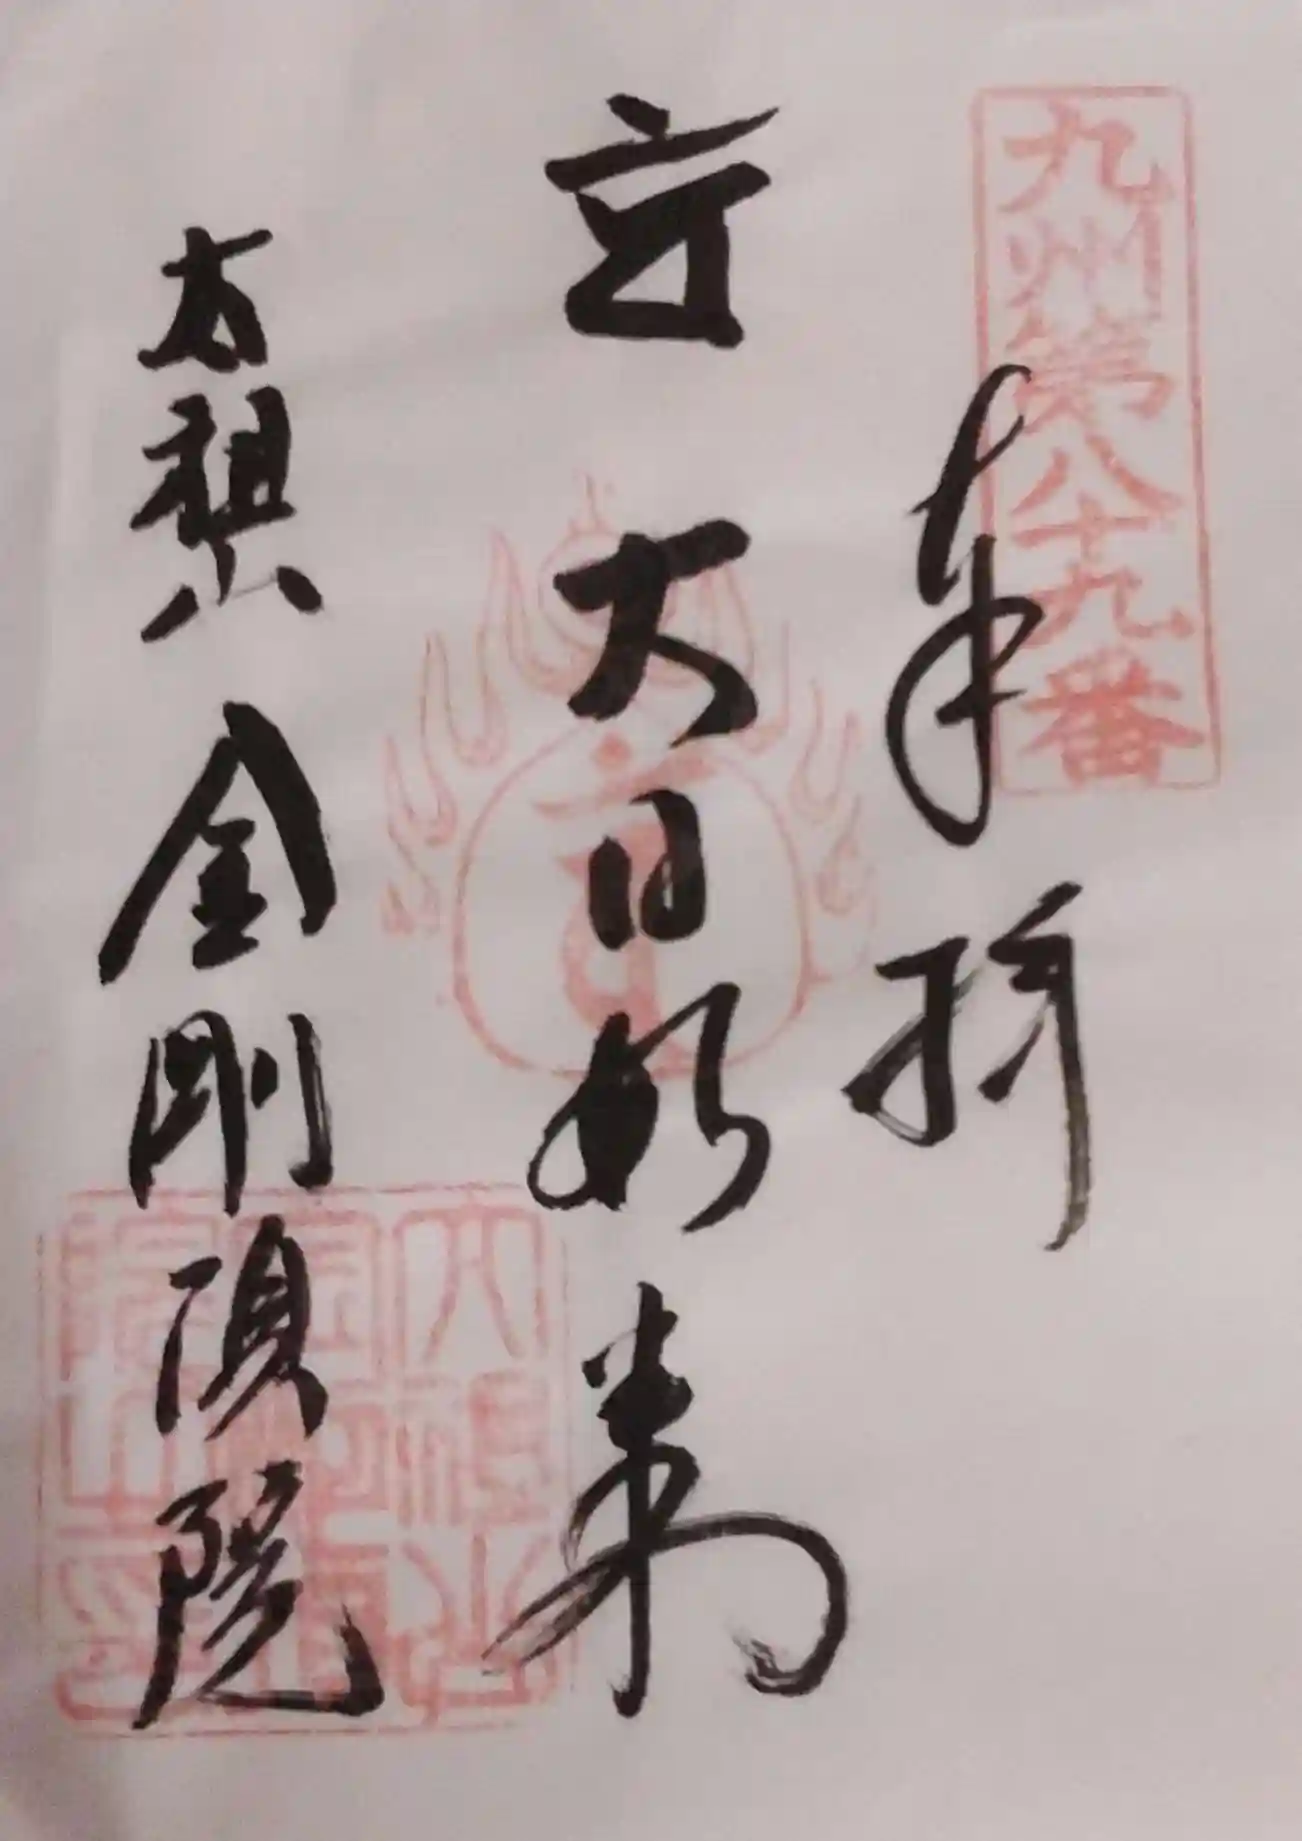 九州第八十九番
奉拝
大日如来
太祖山 金剛頂院